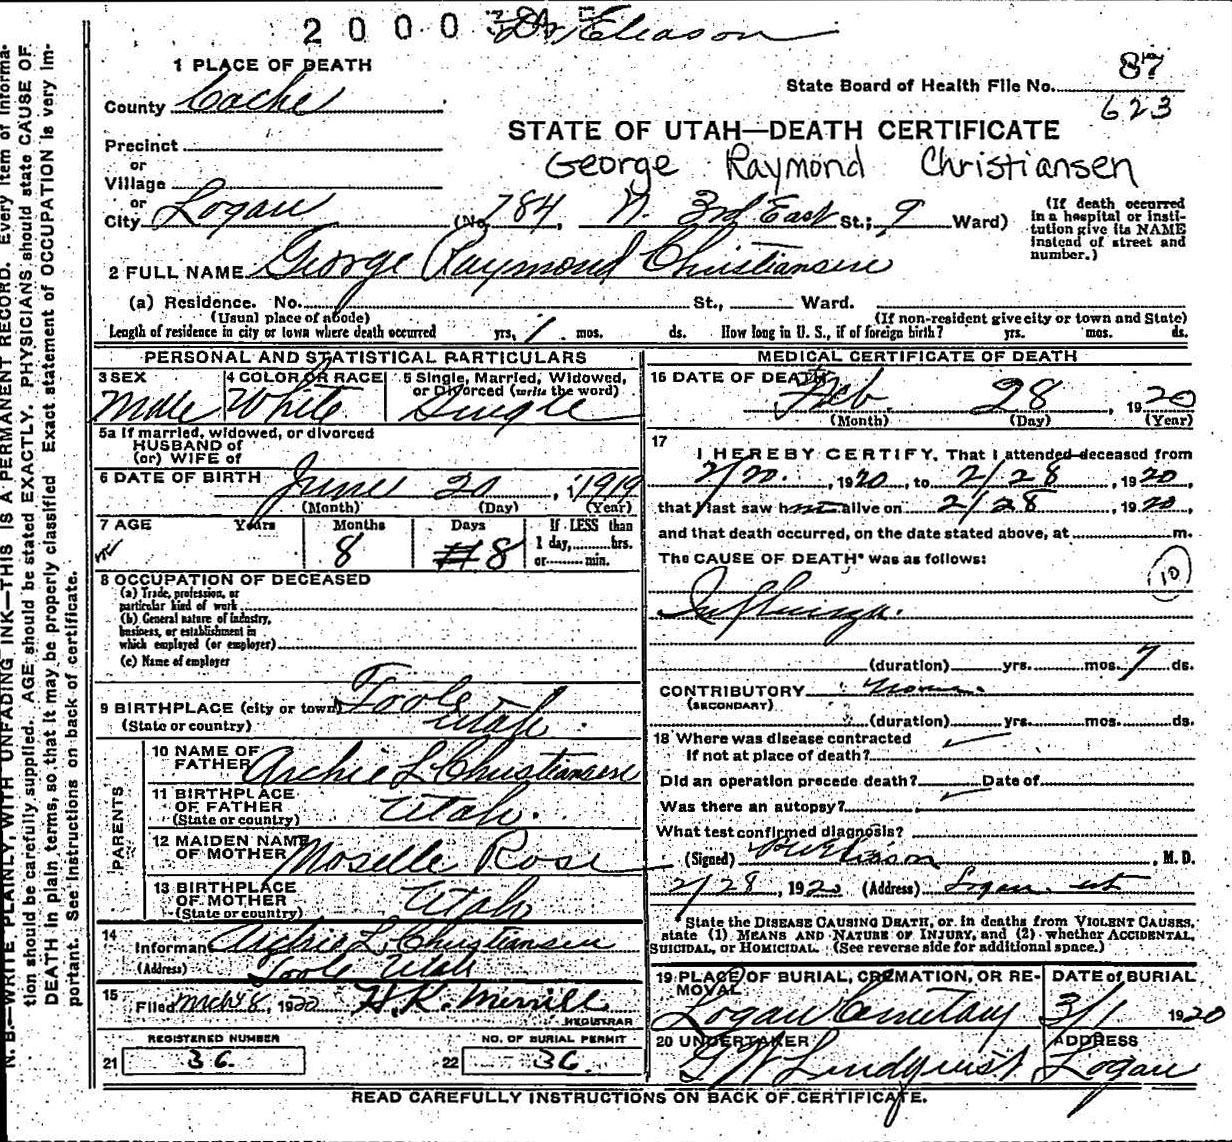 2000 Dr Eleason
1 PLACE OF DEATH
State Board of Health File No. 87
623
County Cache
STATE OF UTAH—DEATH CERTIFICATE
George Raymond Christiansen
Precinct
or
Village
or
City Logan (No. 784 N. 3rd East St.; 9 Ward)
(If death occurred in a hospital or insti-
tution give its NAME
instead of street and
number.)
2 FULL NAME George Raymond Christiansen
(a) Residence. No. St., Ward.
(Usual place of abode) (If non-resident give city or town and State)
Length of residence in city or town where death occurred yrs. 1 mos. ds. How long in U. S., if of foreign birth? yrs. mos. ds.
PERSONAL AND STATISTICAL PARTICULARS
3 SEX 4 COLOR OR RACE 5 Single, Married, Widowed,
or Divorced (write the word)
Male White Single
5a If married, widowed, or divorced
HUSBAND of
(or) WIFE of
6 DATE OF BIRTH June 20, 1919
(Month) (Day) (Year)
7 AGE Years Months Days If LESS than
1 day, hrs.
or min.
8 8
8 OCCUPATION OF DECEASED
(a) Trade, profession, or
particular kind of work
(b) General nature of industry,
business, or establishment in
which employed (or employer)
(c) Name of employer
9 BIRTHPLACE (city or town) Toole
(State or country) Utah
PARENTS
10 NAME OF
FATHER Archie L Christiansen
11 BIRTHPLACE
OF FATHER Utah.
(State or country)
12 MAIDEN NAME
OF MOTHER Moselle Rose
13 BIRTHPLACE
OF MOTHER Utah
(State or country)
14
Informant Archie L. Christiansen
(Address) Toole Utah
15 Filed Mch 8, 1920 H.K. Merrill
REGISTRAR
REGISTERED NUMBER NO. OF BURIAL PERMIT
21 36 22 36
MEDICAL CERTIFICATE OF DEATH
16 DATE OF DEATH
Feb. 28, 1920
(Month) (Day) (Year)
17
I HEREBY CERTIFY, That I attended deceased from
2/20, 1920, to 2/28, 1920,
that I last saw h alive on 2/28, 1920,
and that death occurred, on the date stated above, at m.
The CAUSE OF DEATH* was as follows:
10
Influenza.
(duration) yrs. mos. 7 ds.
CONTRIBUTORY None.
(SECONDARY)
(duration) yrs. mos. ds.
18 Where was disease contracted
If not at place of death?
Did an operation precede death? Date of
Was there an autopsy?
What test confirmed diagnosis?
(Signed) Eliason, M. D.
2/28, 1920 (Address) Logan ut
State the DISEASE CAUSING DEATH, or in deaths from VIOLENT CAUSES,
state (1) MEANS AND NATURE OF INJURY, and (2) whether ACCIDENTAL,
SUICIDAL, or HOMICIDAL. (See reverse side for additional space.)
19 PLACE OF BURIAL, CREMATION, OR RE-
MOVAL DATE of BURIAL
Logan Cemetary 3/1 1920
20 UNDERTAKER ADDRESS
G W Lindquist Logan
READ CAREFULLY INSTRUCTIONS ON BACK OF CERTIFICATE.
N. B.—WRITE PLAINLY, WITH UNFADING INK—THIS IS A PERMANENT RECORD. Every item of informa-
tion should be carefully supplied. AGE should be stated EXACTLY. PHYSICIANS should state CAUSE OF
DEATH in plain terms, so that it may be properly classified. Exact statement of OCCUPATION is very im-
portant. See instructions on back of certificate.